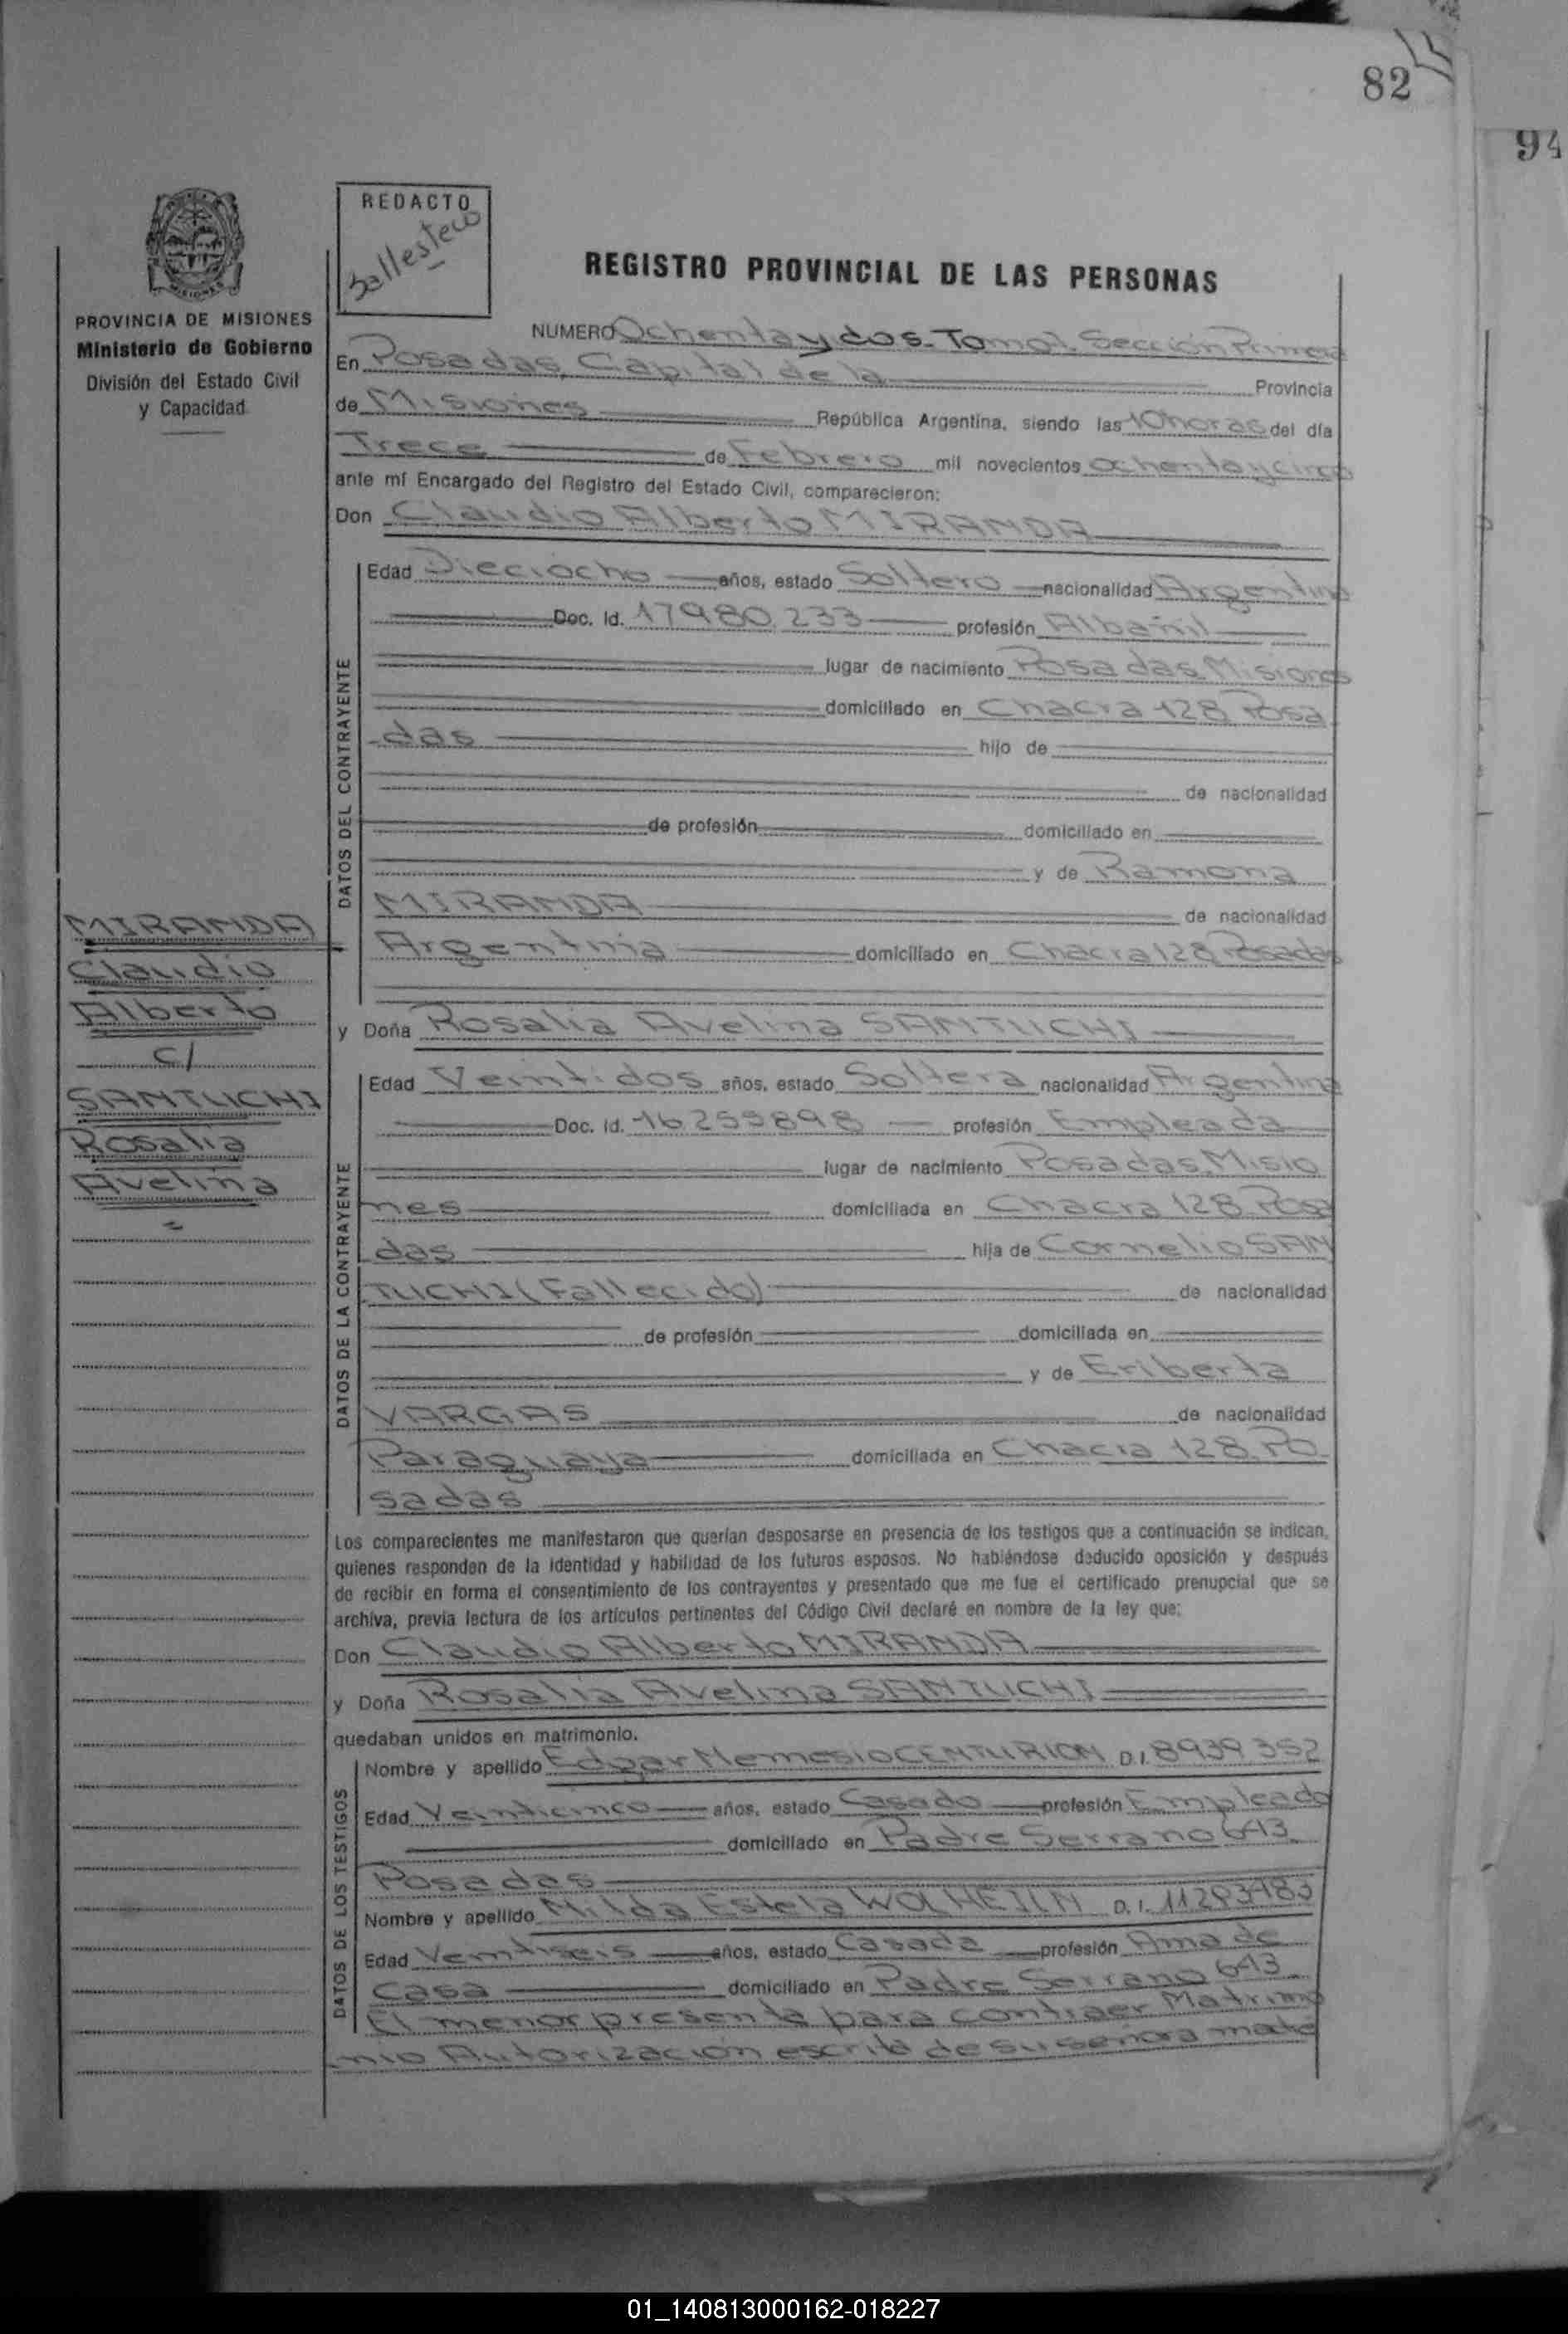 82
94
REDACTO
Ballesteco
PROVINCIA DE MISIONES
Ministerio de Gobierno
División del Estado Civil
y Capacidad
REGISTRO PROVINCIAL DE LAS PERSONAS
NUMERO Ochenta y dos. Tomo 1. Sección Primera
En Posadas, Capital de la Provincia
de Misiones República Argentina, siendo las 10 horas del día
Trece de Febrero mil novecientos ochenta y cinco
ante mí Encargado del Registro del Estado Civil, comparecieron:
Don Claudio Alberto MIRANDA
DATOS DEL CONTRAYENTE
Edad Dieciocho años, estado Soltero nacionalidad Argentina
Doc. Id. 17980.233 profesión Albañil
lugar de nacimiento Posadas Misiones
domiciliado en Chacra 128 Posa
das hijo de
de nacionalidad
de profesión domiciliado en
y de Ramona
MIRANDA de nacionalidad
Argentina domiciliado en Chacra 128 Posadas
MIRANDA
Claudio
Alberto
c/
SANTUCHI
Rosalia
Avelina
y Doña Rosalia Avelina SANTUCHI
DATOS DE LA CONTRAYENTE
Edad Veintidos años, estado Soltera nacionalidad Argentina
Doc. Id. 16259898 profesión Empleada
lugar de nacimiento Posadas Misio
nes domiciliada en Chacra 128 Posa
das hija de Cornelio SAN
TUCHI (Fallecido) de nacionalidad
de profesión domiciliada en
y de Eriberta
VARGAS de nacionalidad
Paraguaya domiciliada en Chacra 128 Po
sadas
Los comparecientes me manifestaron que querían desposarse en presencia de los testigos que a continuación se indican,
quienes responden de la identidad y habilidad de los futuros esposos. No habiéndose deducido oposición y después
de recibir en forma el consentimiento de los contrayentes y presentado que me fue el certificado prenupcial que se
archiva, previa lectura de los artículos pertinentes del Código Civil declaré en nombre de la ley que:
Don Claudio Alberto MIRANDA
y Doña Rosalia Avelina SANTUCHI
quedaban unidos en matrimonio.
DATOS DE LOS TESTIGOS
Nombre y apellido Edgar Nemesio CENTURION D.I. 8939352
Edad Veinticinco años, estado Casado profesión Empleado
domiciliado en Padre Serrano 643
Posadas
Nombre y apellido Milda Estela WOLHEIIN D.I. 11293483
Edad Veintiseis años, estado Casada profesión Ama de
Casa domiciliado en Padre Serrano 643
El menor presenta para contraer Matrimo
nio Autorización escrita de su señora madre
01_140813000162-018227